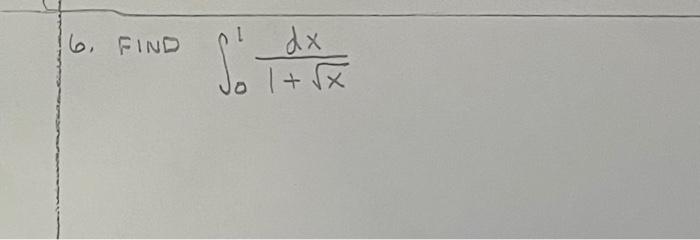 6. FIND ∫₀¹ dx / (1 + √x)